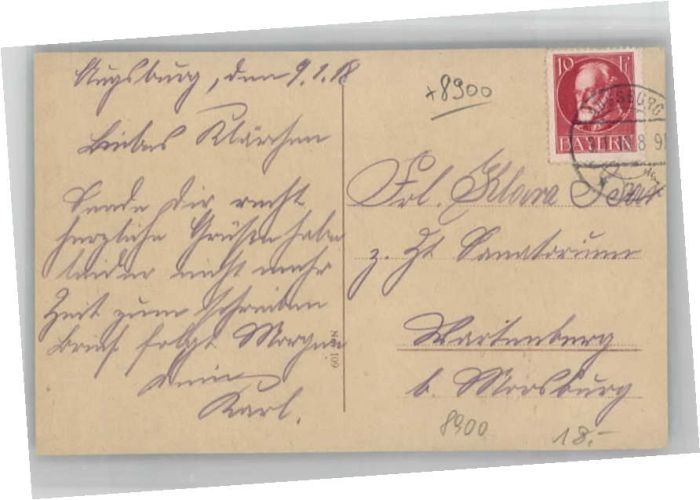 Augsburg, den 9.1.18
Liebes Klärchen
Sende dir recht
herzliche Grüße habe
leider nicht mehr
Zeit zum schreiben
Brief folgt Morgen
Dein
Karl.
N 109
x8900
10 Pf
BAYERN
AUGSBURG
Frl. Klara
z. Zt Sanatorium
Wartenberg
b. Moosburg
8900
18.-